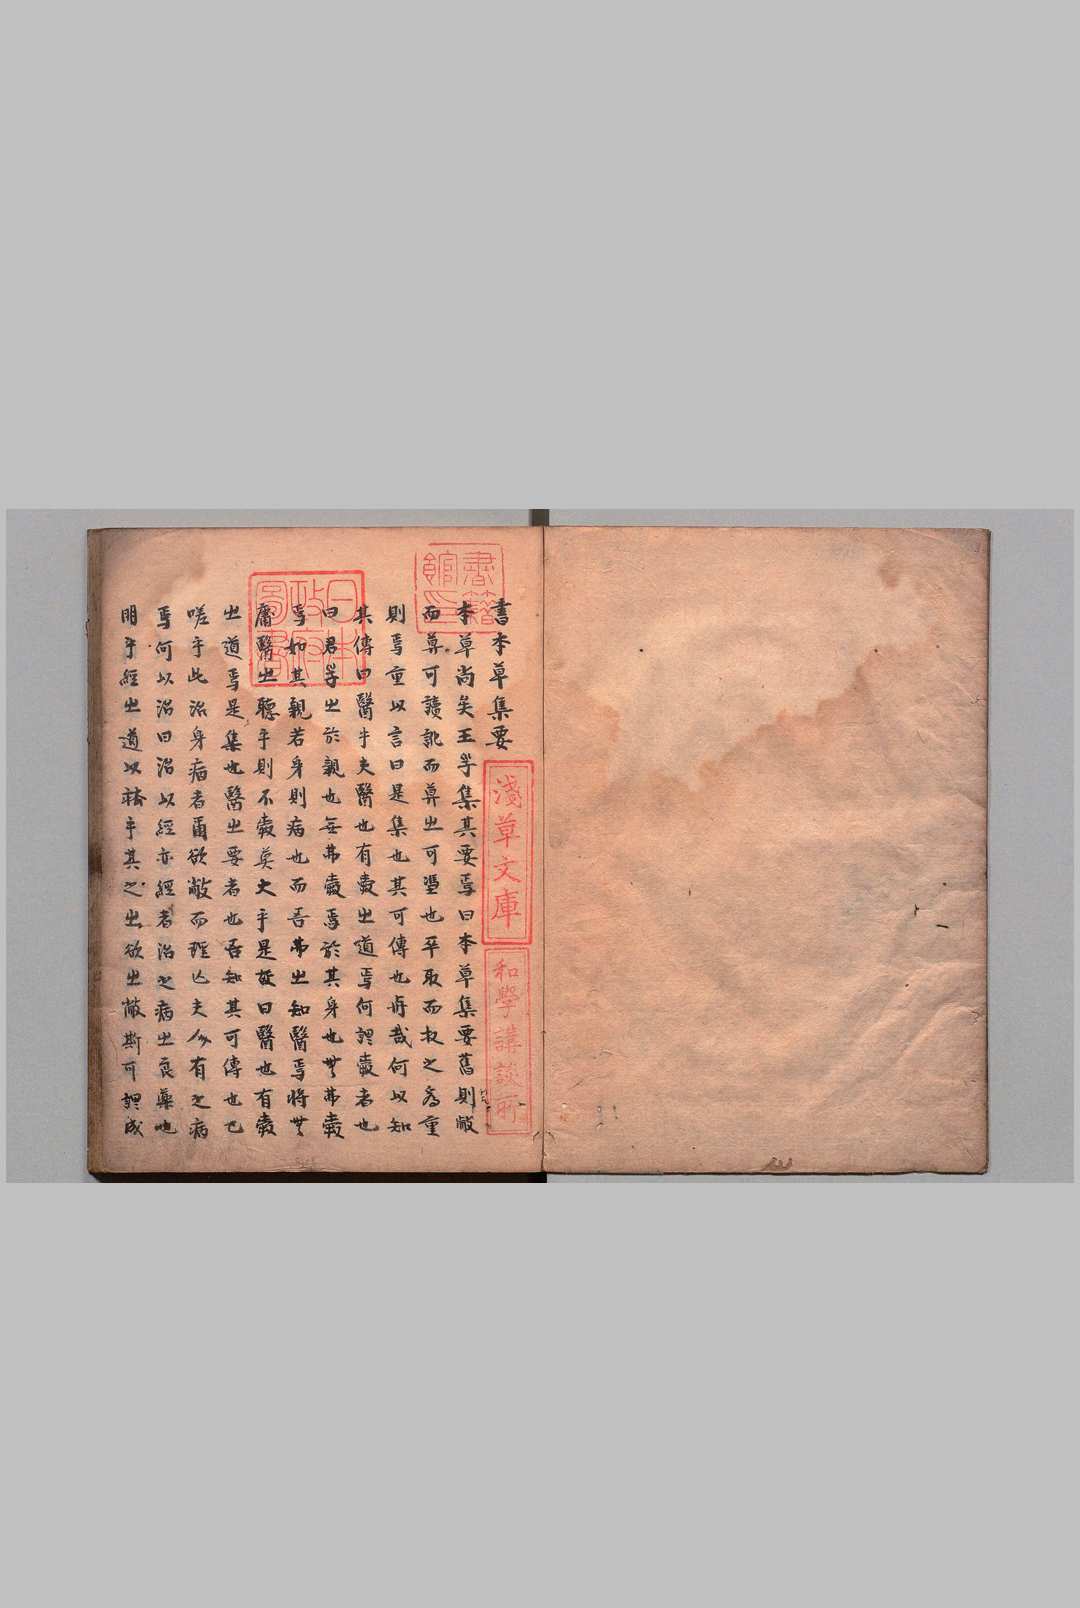 書本草集要
本草尚矣王子集其要焉曰本草集要舊則敝
而尊可讀訛而尊之可㥀也卒取而校之爲重
則焉重以言曰是集也其可傳也奇哉何以知
其傳曰醫乎夫醫也有毉之道焉何謂毉者也
曰君子之於親也無弗毉焉於其身也無弗毉
焉如其親若身則病也而吾弗之知醫焉將無
庸醫之聽乎則不毉莫大乎是故曰醫也有毉
之道焉是集也醫之要者也吾知其可傳也已
嗟乎此治身病者爾欲敝而理亡夫人有之病
焉何以治曰治以經亦經者治之病之良藥也
明乎經之道以藥乎其心之欲之敝斯可謂成
書籍館印
日本政府圖書
淺草文庫
和學講談所